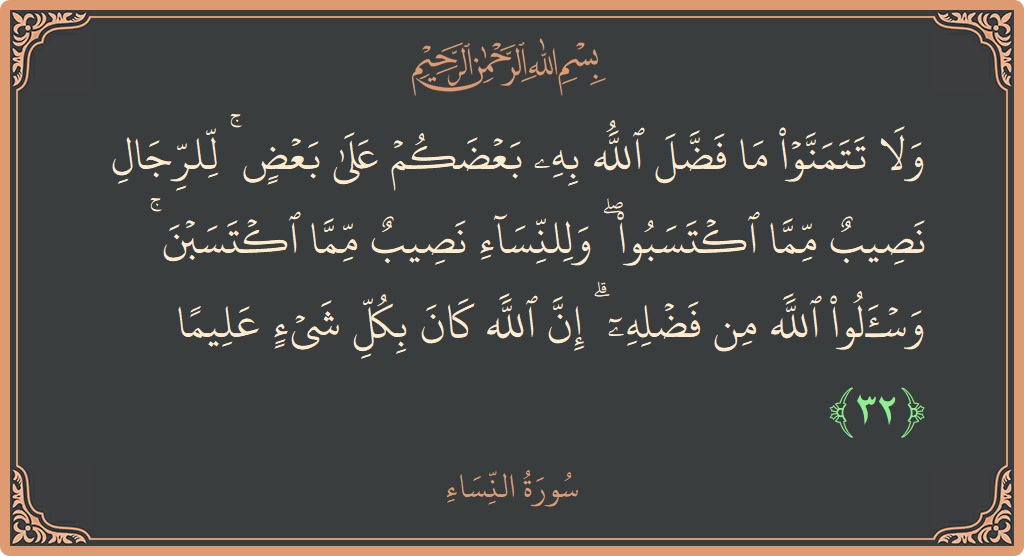 بِسْمِ اللهِ الرَّحْمٰنِ الرَّحِيْمِ
وَلَا تَتَمَنَّوْا۟ مَا فَضَّلَ ٱللَّهُ بِهِۦ بَعْضَكُمْ عَلَىٰ بَعْضٍ ۚ لِّلرِّجَالِ
نَصِيبٌ مِّمَّا ٱكْتَسَبُوا۟ ۖ وَلِلنِّسَآءِ نَصِيبٌ مِّمَّا ٱكْتَسَبْنَ ۚ
وَسْـَٔلُوا۟ ٱللَّهَ مِن فَضْلِهِۦٓ ۗ إِنَّ ٱللَّهَ كَانَ بِكُلِّ شَىْءٍ عَلِيمًا
﴿٣٢﴾
سُورَةُ النِّسَاءِ